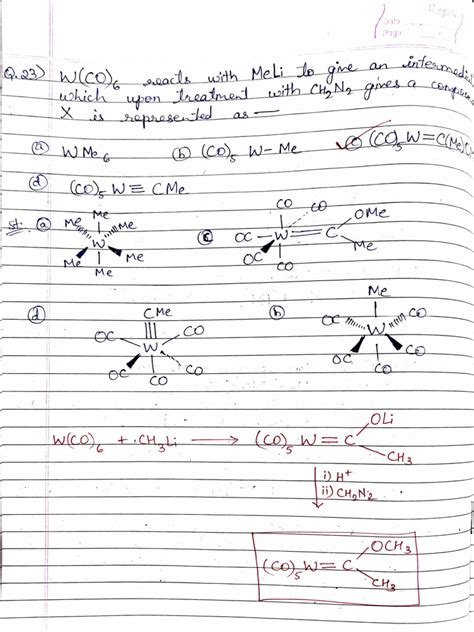 Date
Page
Q.23) W(CO)6 reacts with MeLi to give an
which upon treatment with CH2N2 gives a
X is represented as —
(a) WMe6 (b) (CO)5 W-Me (c) (CO)5 W=C(Me)
(d) (CO)5 W≡CMe
(a) Me Me Me W Me Me Me
(c) CO CO OC W=C OMe Me OC CO
(d) CMe OC W CO OC CO CO
(b) Me OC W CO OC CO CO
W(CO)6 + CH3Li → (CO)5 W=C OLi CH3
i) H+
ii) CH2N2
(CO)5 W=C OCH3 CH3